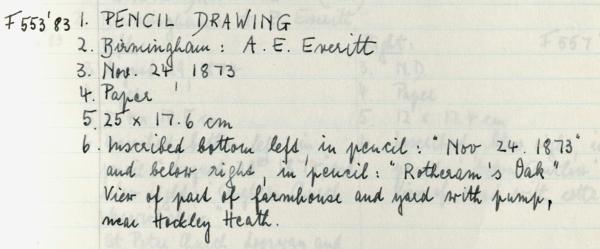 F553'83 1. PENCIL DRAWING
2. Birmingham: A. E. Everitt
3. Nov. 24 1873
4. Paper
5. 25 x 17.6 cm
6. Inscribed bottom left, in pencil: "Nov 24. 1873"
and below right, in pencil: "Rotheram's Oak"
View of part of farmhouse and yard with pump,
near Hockley Heath.